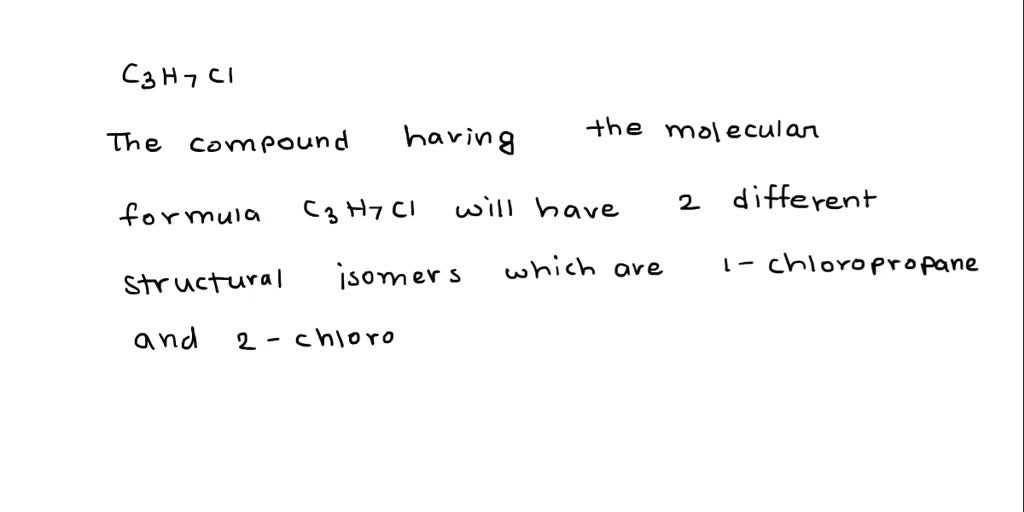 C3H7Cl
The compound having the molecular
formula C3H7Cl will have 2 different
structural isomers which are 1-chloropropane
and 2-chloro